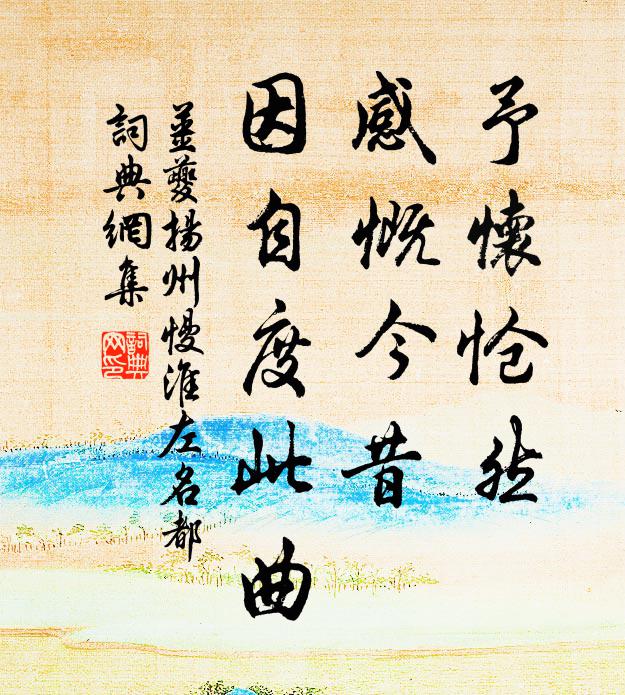 予懷愴然
感慨今昔
因自度此曲
姜夔揚州慢淮左名都
詞典網集
詞典網印